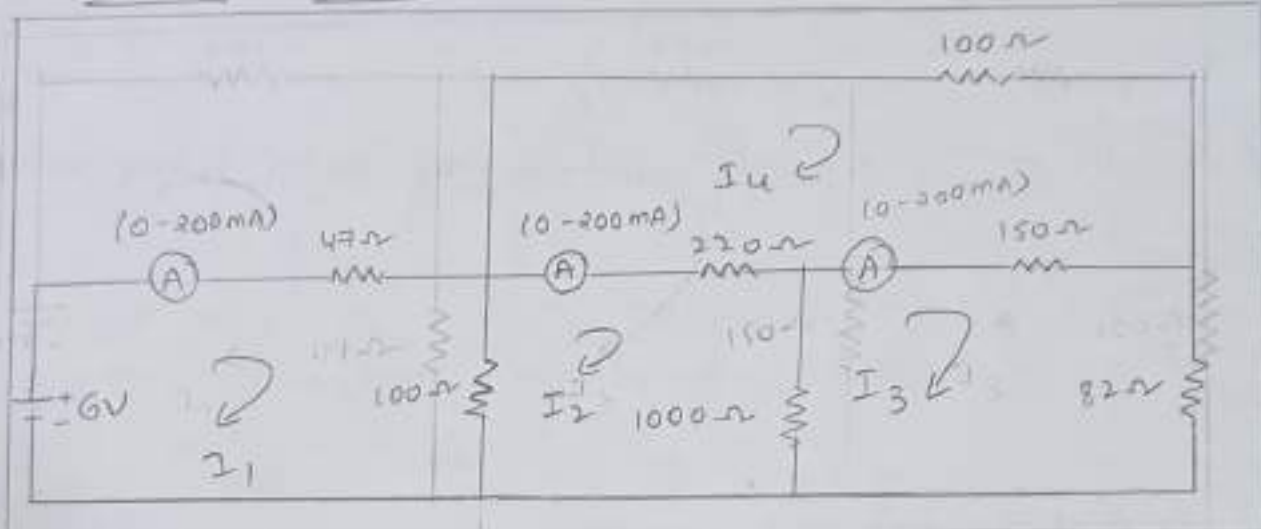 100Ω
I4
(0-200mA)
47Ω
(0-200mA)
220Ω
(0-200mA)
150Ω
6V
I1
100Ω
I2
150
1000Ω
I3
82Ω